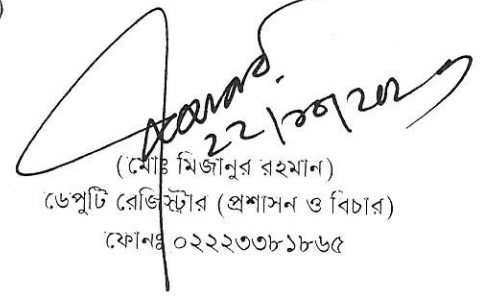 ২২/১০/২০২৩
(মোঃ মিজানুর রহমান)
ডেপুটি রেজিস্ট্রার (প্রশাসন ও বিচার)
ফোনঃ ০২২২৩৩৮১৮৬৫